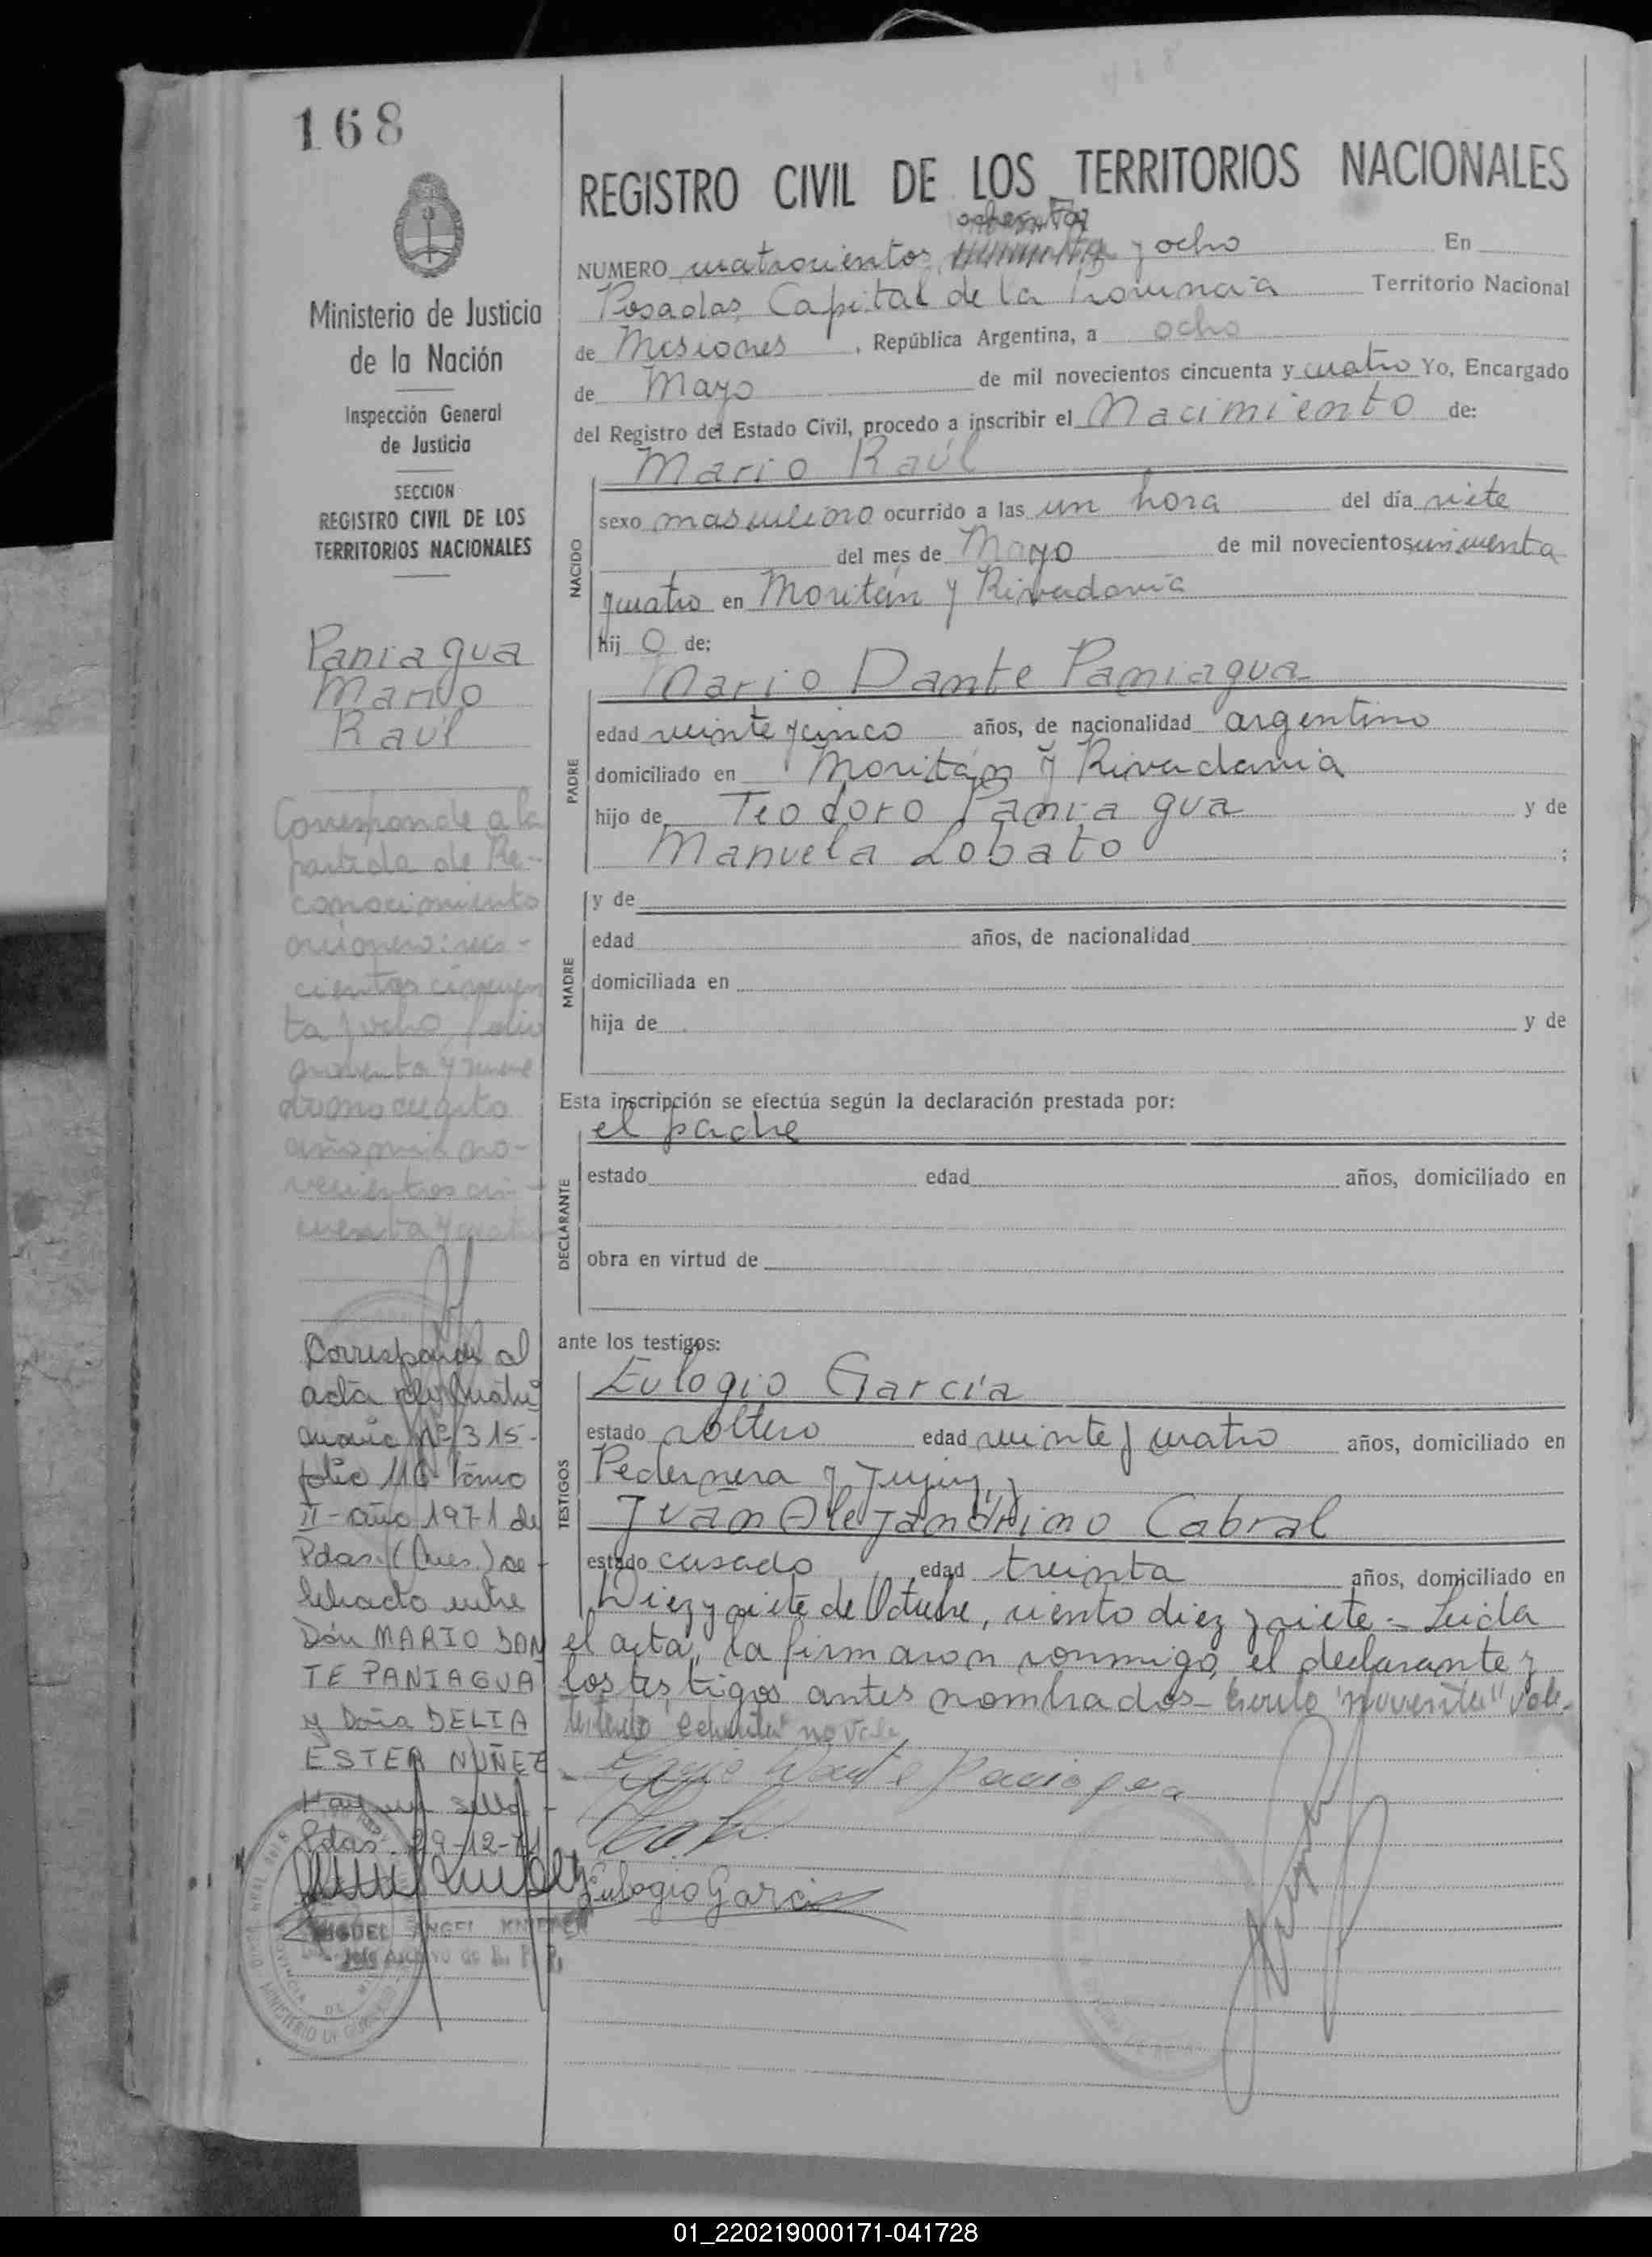 168
REGISTRO CIVIL DE LOS TERRITORIOS NACIONALES
ochenta
NUMERO cuatrocientos y ocho En
Posadas, Capital de la Provincia Territorio Nacional
de Misiones , República Argentina, a ocho
de Mayo de mil novecientos cincuenta y cuatro Yo, Encargado
del Registro del Estado Civil, procedo a inscribir el Nacimiento de:
Mario Raúl
NACIDO
sexo masculino ocurrido a las un hora del día siete
del mes de Mayo de mil novecientos cincuenta
y cuatro en Moritán y Rivadavia
hij o de:
Mario Dante Paniagua
PADRE
edad veinte y cinco años, de nacionalidad argentino
domiciliado en Moritán y Rivadavia
hijo de Teodoro Paniagua y de
Manuela Lobato ;
MADRE
y de
edad años, de nacionalidad
domiciliada en
hija de y de
Esta inscripción se efectúa según la declaración prestada por:
el padre
DECLARANTE
estado edad años, domiciliado en
obra en virtud de
ante los testigos:
TESTIGOS
Eulogio García
estado soltero edad veinte y cuatro años, domiciliado en
Pedernera y Jujuy, y
Juan Alejandrino Cabral
estado casado edad treinta años, domiciliado en
Diez y siete de Octubre, ciento diez y siete - Leida
el acta, la firmaron conmigo, el declarante y
los testigos antes nombrados - "noventa" vale.
no vale
Mario Dante Paniagua
Eulogio Garcia
Ministerio de Justicia
de la Nación
Inspección General
de Justicia
SECCION
REGISTRO CIVIL DE LOS
TERRITORIOS NACIONALES
Paniagua
Mario
Raúl
Corresponde a la
partida de Re-
conocimiento
número: seis-
cientos cincuen
ta y ocho, folio
y nueve
tomo cuarto
año mil no-
vecientos cin-
cuenta y cuatro
Corresponde al
acta de Matri
monio Nº 315-
folio 116 tomo
II - año 1971 de
Pdas. (Mnes.) ce-
lebrado entre
Don MARIO DAN
TE PANIAGUA
y Doña DELIA
ESTER NUÑEZ
Pdas. 29-12-71
MIGUEL ANGEL
Jefe Archivo de
01_220219000171-041728